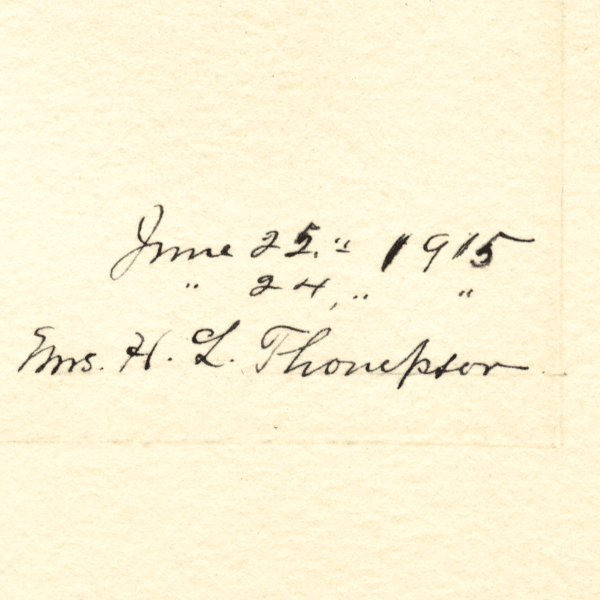 June 25," 1915
" 24," "
Mrs. H. L. Thompson